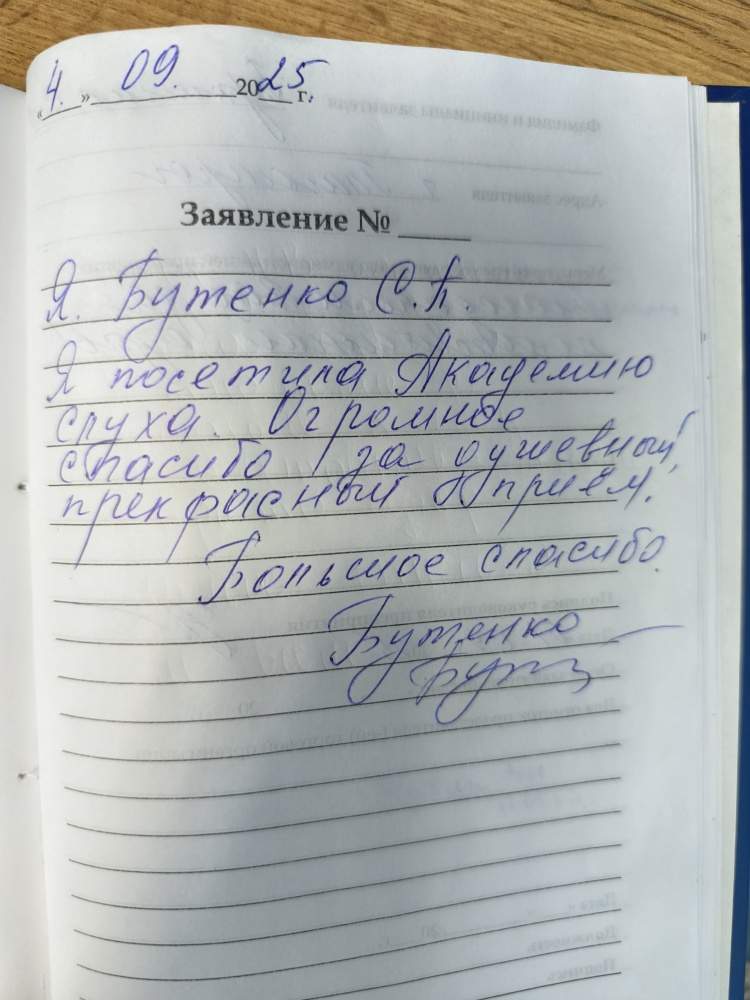 «4.» 09. 2025 г.
Заявление № ____
Я. Бутенко С.П.
Я посетила Академию
слуха. Огромное
спасибо за душевный,
прекрасный приём!
Большое спасибо.
Бутенко